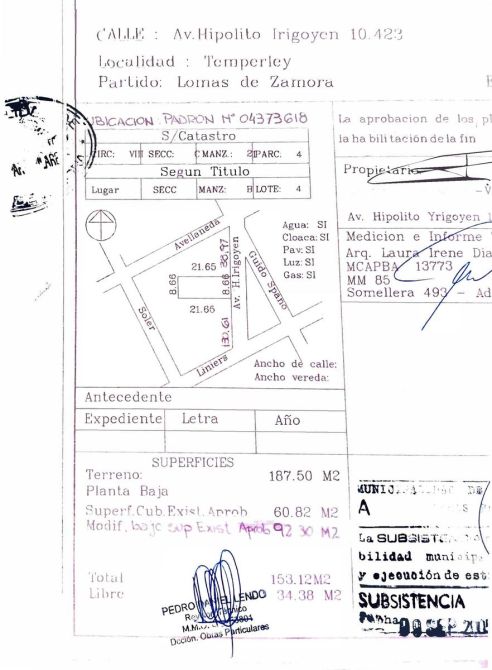 CALLE : Av.Hipolito Irigoyen 10.423
Localidad : Temperley
Partido: Lomas de Zamora
UBICACION: PADRON Nº 04373618
S/Catastro
CIRC: VIII SECC: C MANZ.: 21 PARC. 4
Segun Titulo
Lugar SECC MANZ: H LOTE: 4
Avellaneda
38,97
21.65
8.66
8.66
21.65
Av. H.Irigoyen
Guido Spano
130,61
Soler
Liniers
Agua: SI
Cloaca: SI
Pav: SI
Luz: SI
Gas: SI
Ancho de calle:
Ancho vereda:
Antecedente
Expediente Letra Año
SUPERFICIES
Terreno: 187.50 M2
Planta Baja
Superf.Cub.Exist.Aprob 60.82 M2
Modif. bajo sup Exist Aprob 92 30 M2
Total 153.12M2
Libre 34.38 M2
PEDRO LENDO
M.M.O.
Dcción. Obras Particulares
La aprobacion de los pl
la habilitacion de la fin
Propietario
Av. Hipolito Yrigoyen 1
Medicion e Informe
Arq. Laura Irene Dia
MCAPBA 13773
MM 85
Somellera 493 - Ad
MUNIC DE
A
La SUBSIST
bilidad municip
y ejecución de est
SUBSISTENCIA
Fecha
SEP